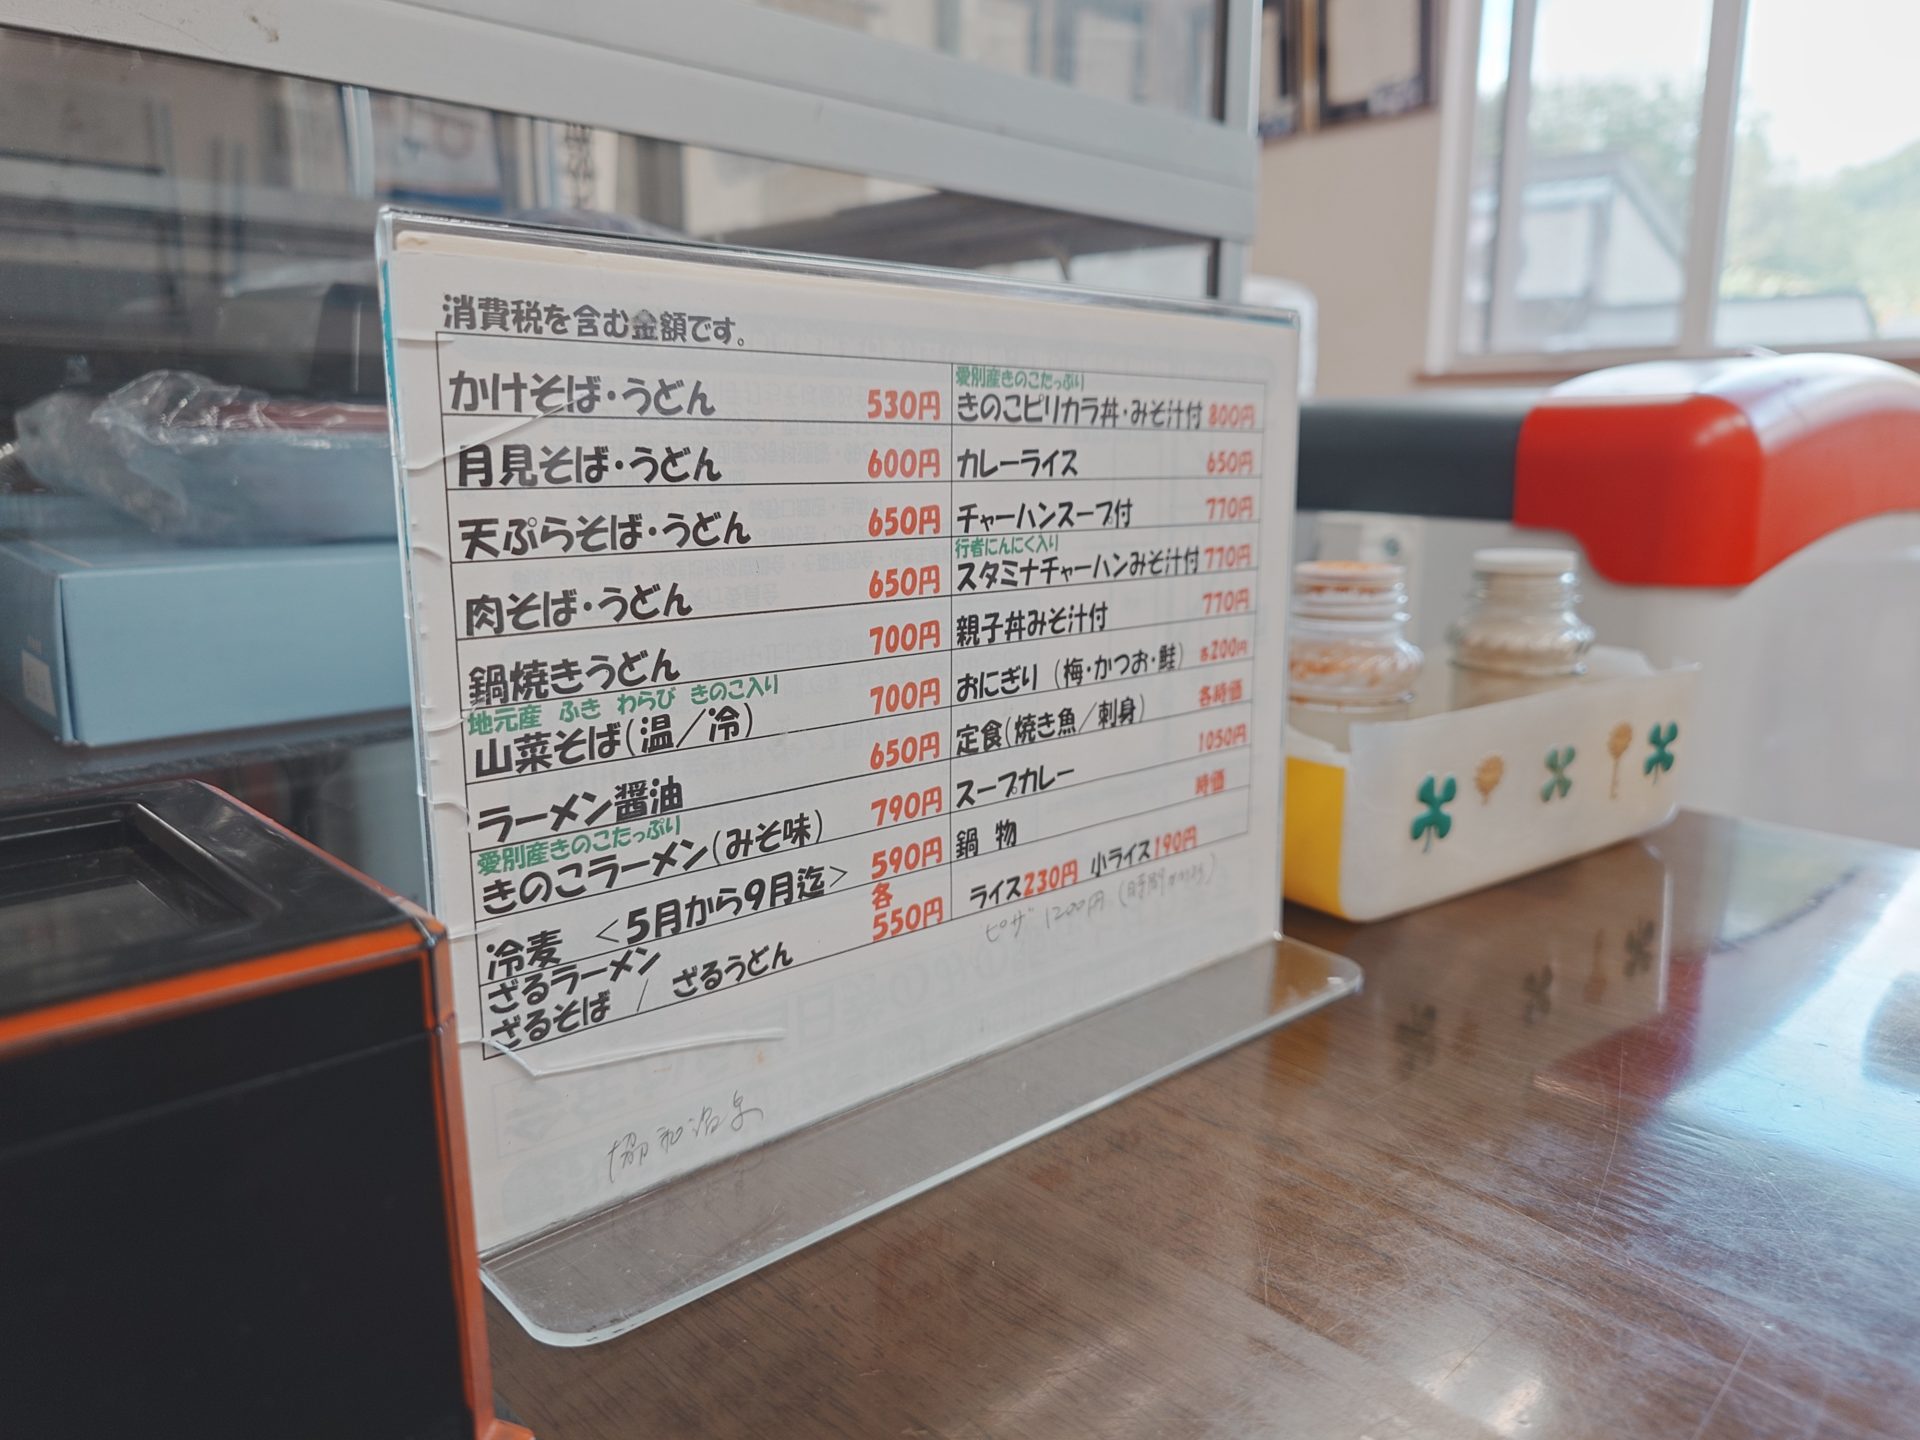 消費税を含む金額です。
かけそば・うどん 530円
月見そば・うどん 600円
天ぷらそば・うどん 650円
肉そば・うどん 650円
鍋焼きうどん 700円
地元産 ふき わらび きのこ入り
山菜そば(温/冷) 700円
ラーメン醤油 650円
愛別産きのこたっぷり
きのこラーメン(みそ味) 790円
冷麦 <5月から9月迄> 590円
ざるラーメン 各
ざるそば / ざるうどん 550円
愛別産きのこたっぷり
きのこピリカラ丼・みそ汁付 800円
カレーライス 650円
チャーハンスープ付 770円
行者にんにく入り
スタミナチャーハンみそ汁付 770円
親子丼みそ汁付 770円
おにぎり (梅・かつお・鮭) 各200円
定食(焼き魚/刺身) 各時価
スープカレー 1050円
鍋 物 時価
ライス230円 小ライス190円
ピザ 1200円 (時間かかる)
協和温泉